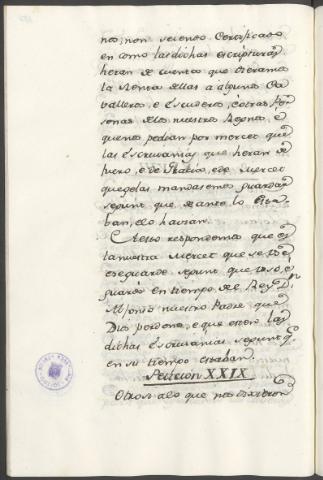 nos, non seiendo Certificado
en como las dichas escripturas
heran de cuento que dieramos
la Renta dellas a algunos Ca
balleros, e Escuderos, e otras Per
sonas de los nuestros Regnos, e
que nos pedian por merced que
las escrivanias que heran de
fuero, e de        e de Merced
que gelas mandasemos guardar
segunt que de ante lo
ban, e lo havian.
A esto respondemos que es
la nuestra Merced que se
e se guarde segunt que             e
guardó en tiempo de el Rey D.n
Alfonso nuestro Padre que
Dios perdone, e que esten las
dichas Escrivanias segunt q.e
en su tiempo estaban.
Peticion XXIX
Otrosi a lo que nos dixeron